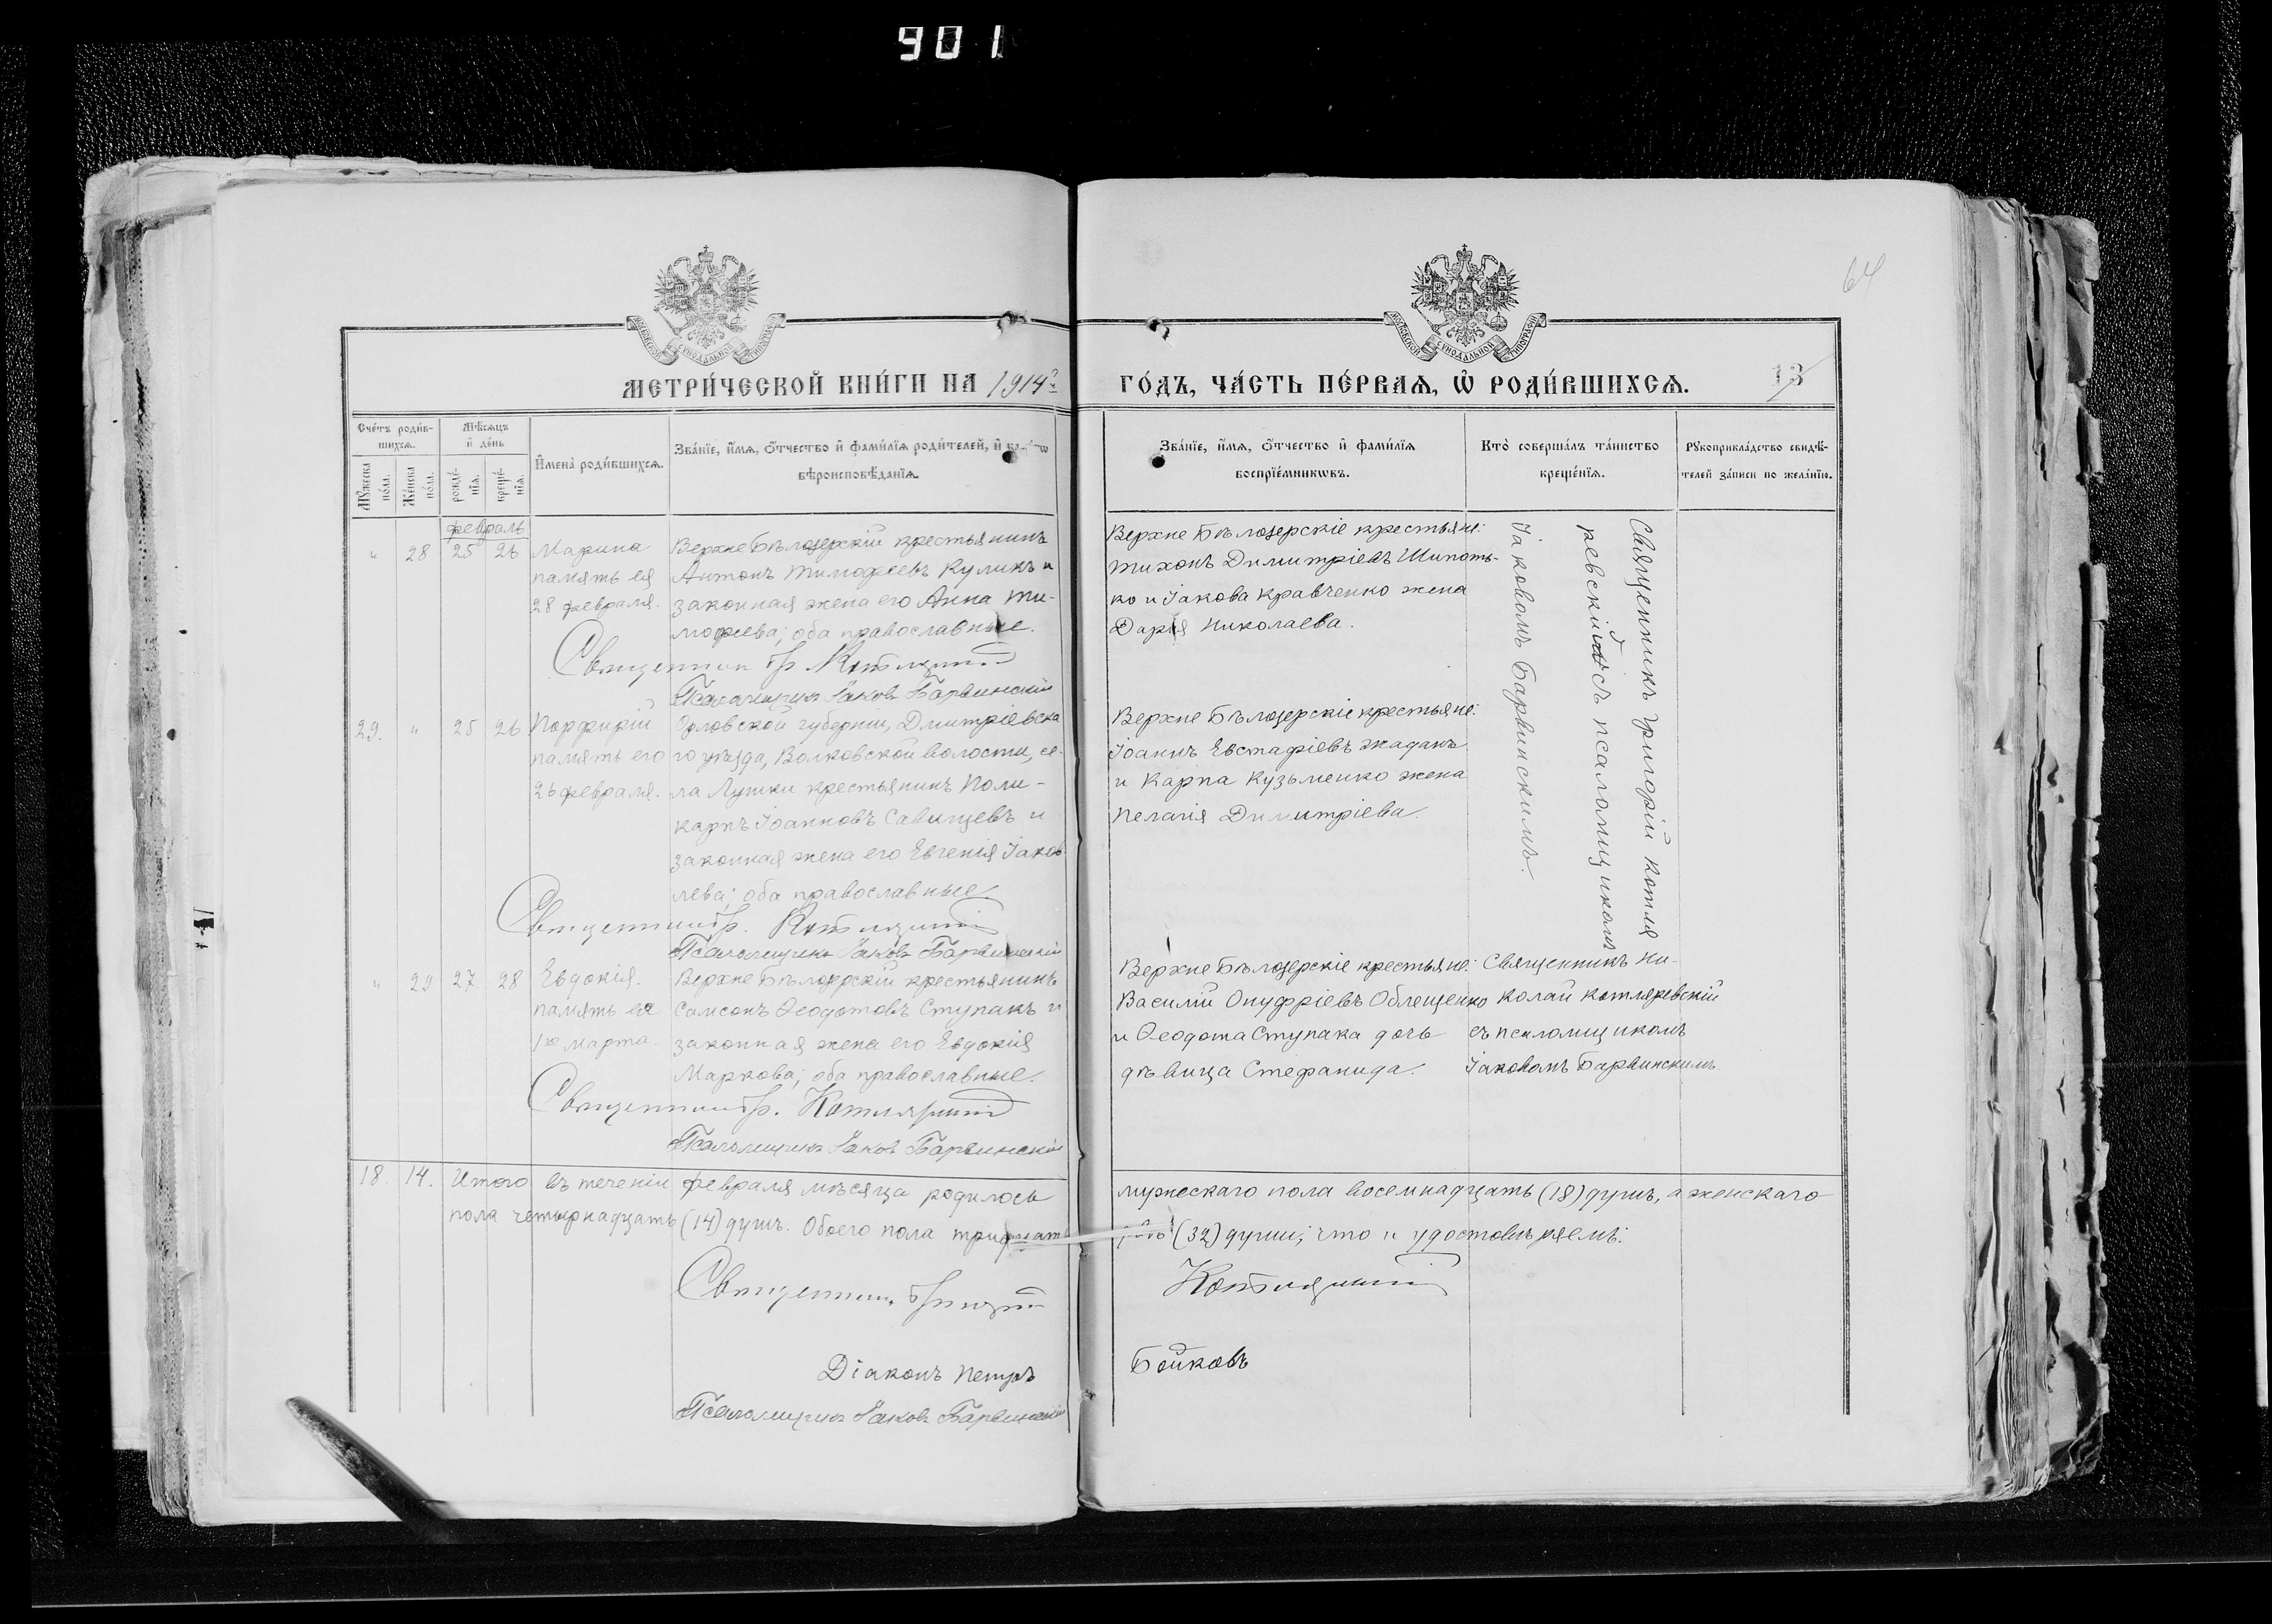 901
64
13
МЕТРИ́ЧЕСКОЙ КНИ́ГИ НА 1914 г.
ГО́ДЪ, ЧА́СТЬ ПЕ́РВАѦ, Ѡ҆ РОДИ́ВШИХСѦ.
Сче́тъ роди́в-
шихсѧ.
Мѣ́сѧцъ
и҆ де́нь
Мꙋ́жеска
по́ла.
Же́нска
по́ла.
рожде́-
нїѧ.
креще́-
нїѧ.
И҆мена̀ роди́вшихсѧ.
Зва́нїе, и҆́мѧ, ѻ҆́тчество и҆ фами́лїѧ роди́телей, и҆
вѣроисповѣ́данїѧ.
Зва́нїе, и҆́мѧ, ѻ҆́тчество и҆ фами́лїѧ
воспрїе́мникѡвъ.
Кто̀ соверша́лъ та́инство
креще́нїѧ.
Рꙋкоприкла́дство свидѣ́-
телей за́писи по жела́нїю.
февраль
" 28 25 26 Марина
память ея
28 февраля.
Верхне Бѣлозерскій крестьянинъ
Антонъ Тимофеевъ Куликъ и
законная жена его Анна Ти-
мофеева; оба православные.
Священник Гр. Котляревский
Псаломщикъ Iаковъ Барвинскій
Верхне Бѣлозерскіе крестьяне:
Тихонъ Димитріевъ Шипоть-
ко и Іакова Кравченко жена
Дарія Николаева.
Священникъ Григорій Котля
ревскій съ псаломщикомъ
Іаковомъ Барвинскимъ.
29. " 25 26 Порфирій
память его
26 февраля.
Орловской губерніи, Дмитріевска
го уѣзда, Волковской волости, се-
ла Лушки крестьянинъ Поли-
карпъ Іоанновъ Савищевъ и
законная жена его Евгенія Іаков
лева; оба православные
Священник Гр. Котляревский
Псаломщикъ Іаковъ Барвинскій
Верхне Бѣлозерскіе крестьяне:
Іоаннъ Евстафіевъ Жаданъ
и Карпа Кузьменко жена
Пелагія Димитріева.
" 29 27. 28 Евдокія.
память ея
1го марта.
Верхне Бѣлозерскій крестьянинъ
Самсонъ Ѳеодотовъ Ступакъ и
законная жена его Евдокія
Маркова; оба православные.
Священник Гр. Котляревский
Псаломщикъ Іаковъ Барвинскій
Верхне Бѣлозерскіе крестьяне:
Василій Онуфріевъ Облещенко
и Ѳеодота Ступака дочь
дѣвица Стефанида.
Священникъ Ни-
колай Котляревскій
съ псаломщикомъ
Іаковомъ Барвинскимъ
18. 14. Итого въ теченіи февраля мѣсяца родилось мужескаго пола восемнадцать (18) душъ, а женскаго
пола четырнадцать (14) душъ. Обоего пола тридцать двѣ (32) души; что и удостовѣряемъ:
Священник Григорий Котляревский
Діаконъ Петръ Бойковъ
Псаломщикъ Іаковъ Барвинскій